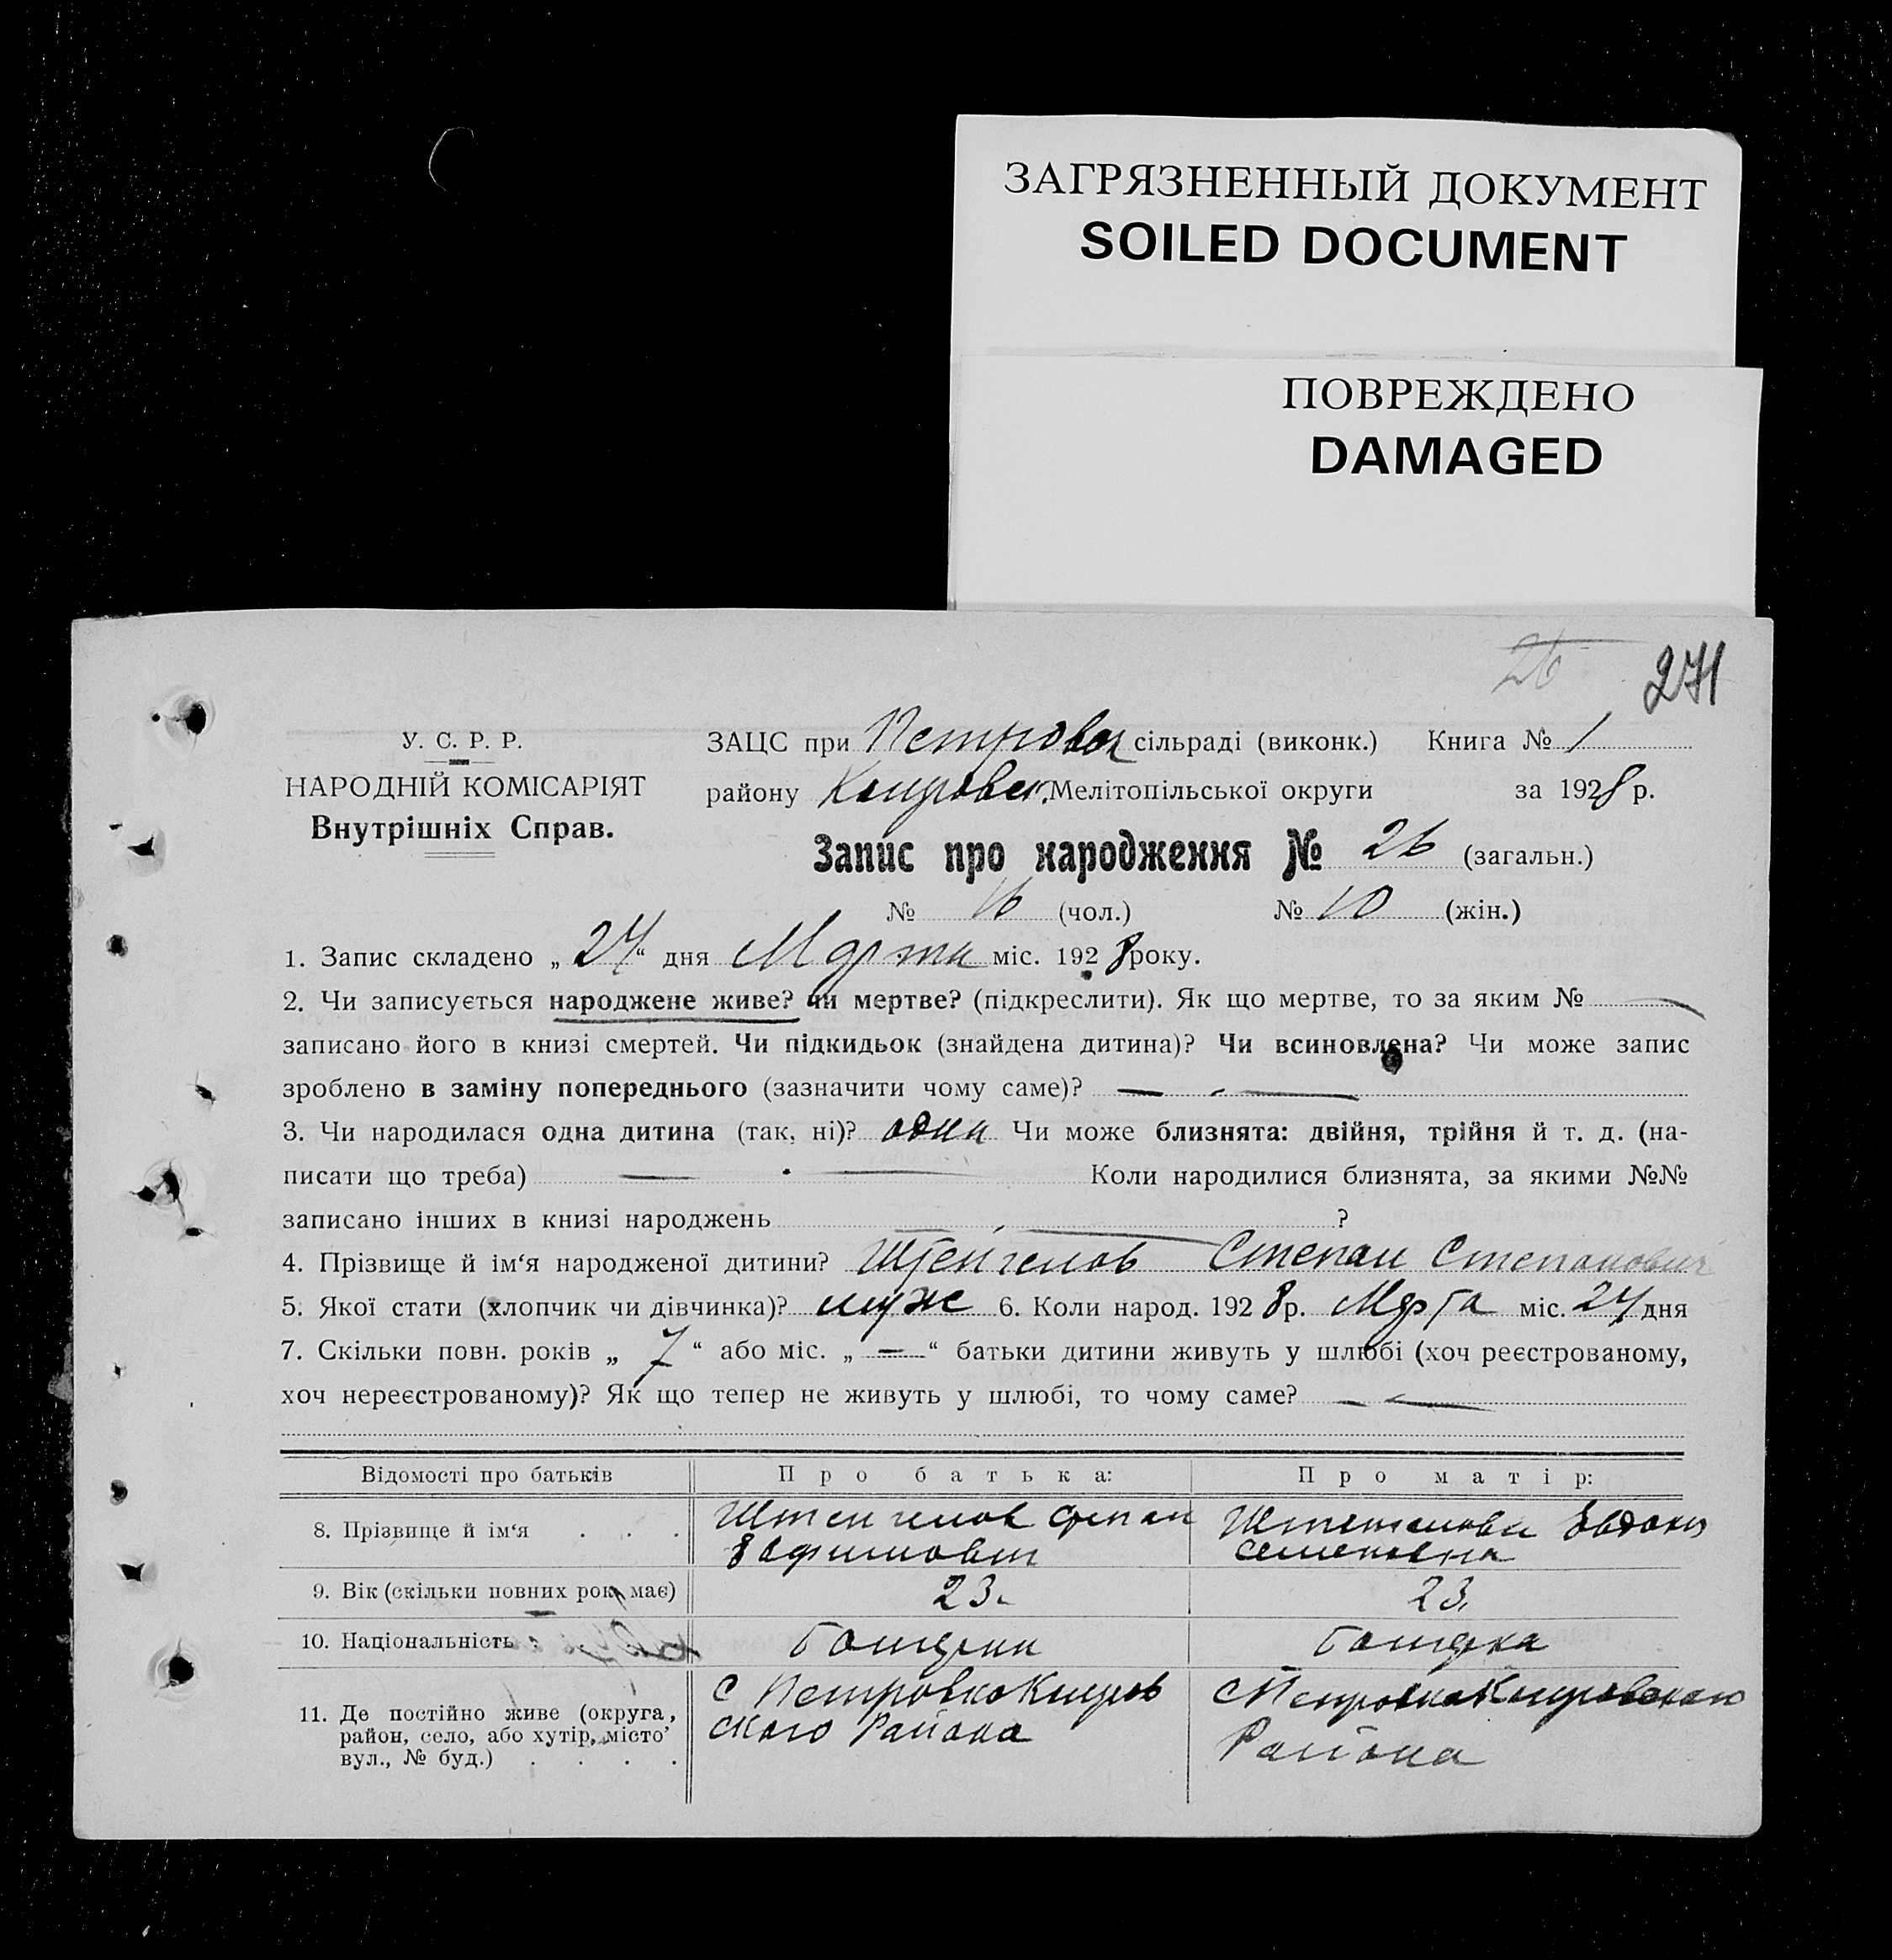 ЗАГРЯЗНЕННЫЙ ДОКУМЕНТ
SOILED DOCUMENT
ПОВРЕЖДЕНО
DAMAGED
26 271
У. С. Р. Р.
НАРОДНІЙ КОМІСАРІЯТ
Внутрішніх Справ.
ЗАЦС при Петровск сільраді (виконк.) Книга № 1
району Мелітопільської округи за 1928 р.
Запис про народження № 26 (загальн.)
№ 16 (чол.) № 10 (жін.)
1. Запис складено „ 24 “ дня Марта міс. 1928 року.
2. Чи записується народжене живе? чи мертве? (підкреслити). Як що мертве, то за яким № —
записано його в книзі смертей. Чи підкидьок (знайдена дитина)? Чи всиновлена? Чи може запис
зроблено в заміну попереднього (зазначити чому саме)? — —
3. Чи народилася одна дитина (так, ні)? одна Чи може близнята: двійня, трійня й т. д. (на-
писати що треба) — — Коли народилися близнята, за якими №№
записано інших в книзі народжень — — ?
4. Прізвище й ім‘я народженої дитини? Степан Степанович
5. Якої стати (хлопчик чи дівчинка)? муж 6. Коли народ. 1928 р. Марта міс. 24 дня
7. Скільки повн. років „ 7 “ або міс. „ — “ батьки дитини живуть у шлюбі (хоч реєстрованому,
хоч нереєстрованому)? Як що тепер не живуть у шлюбі, то чому саме? — —
Відомості про батьків
Про батька:
Про матір:
8. Прізвище й ім‘я . . .
Степан
Семеновна
9. Вік (скільки повних рок. має)
23.
23.
10. Національність
11. Де постійно живе (округа,
район, село, або хутір, місто
вул., № буд.) . . . .
С Петровка
ского Района
С Петровка
Района